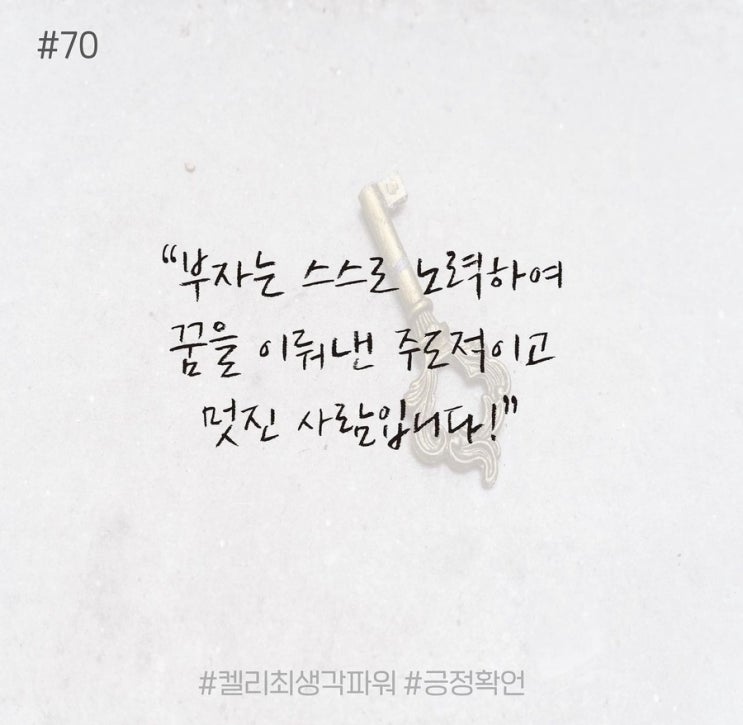 #70
“부자는 스스로 노력하여
꿈을 이뤄낸 주도적이고
멋진 사람입니다!”
#켈리최생각파워 #긍정확언